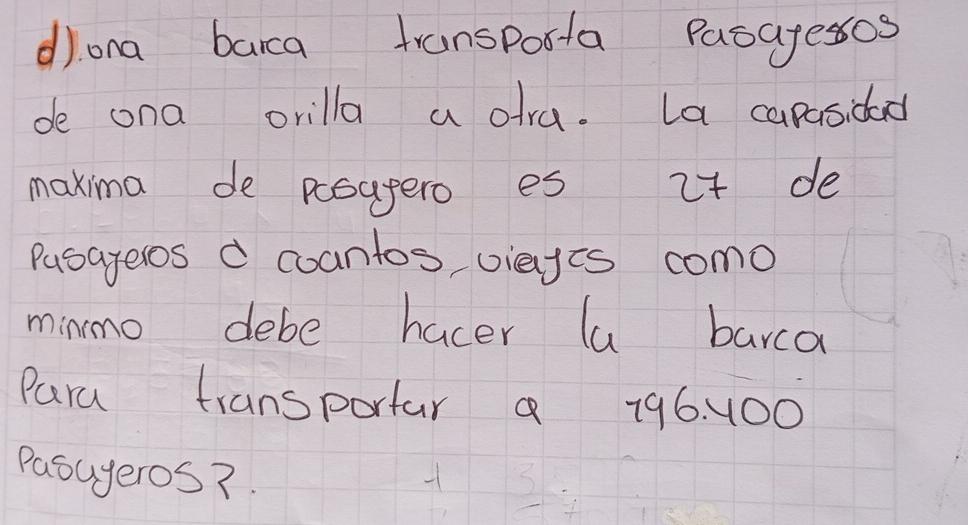 d). ona barca transporta Pasayesos
de ona orilla a otra. La capasidad
maxima de pasayero es 27 de
Pasayeros d coantos, vieayes como
minimo debe hacer la barca
Para transportar a 796.400
Pasayeros?.